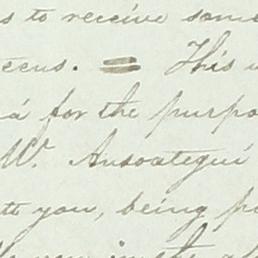 s to receive some
eens. = This
a for the purpo
W. Ansoategui
you, being p